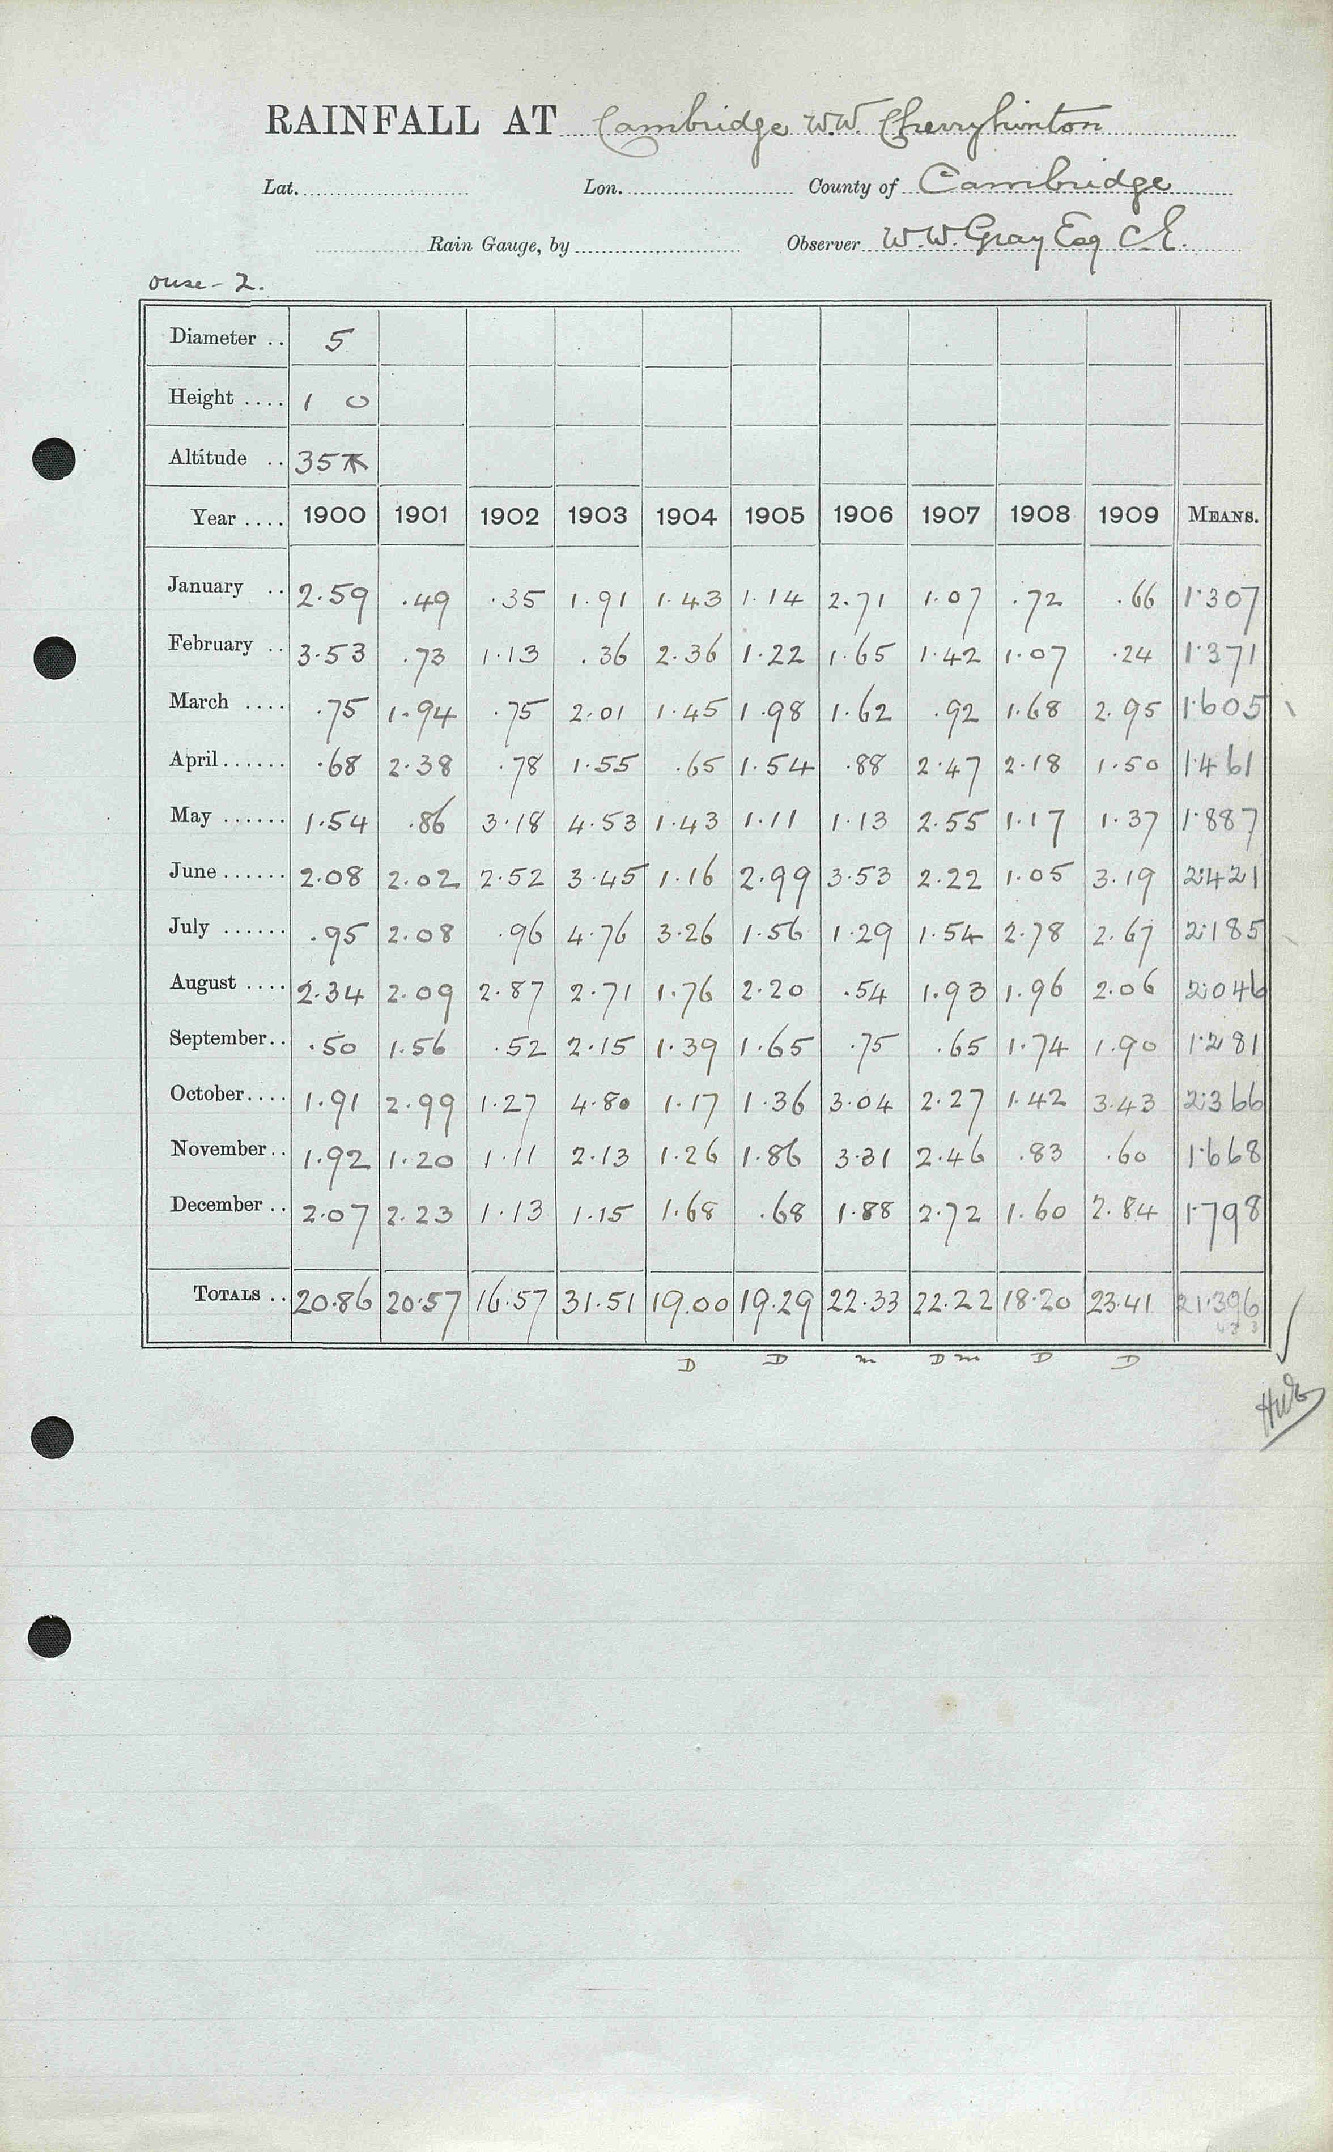 RAINFALL AT Cambridge W.W. Cherryhinton
Lat. Lon. County of Cambridge
Rain Gauge, by Observer W.W. Gray Esq C.E.
ouse - 2.
Diameter .. 5
Height .... 1 0
Altitude .. 35
Year .... 1900 1901 1902 1903 1904 1905 1906 1907 1908 1909 MEANS.
January .. 2.59 .49 .35 1.91 1.43 1.14 2.71 1.07 .72 .66 1.307
February .. 3.53 .73 1.13 .36 2.36 1.22 1.65 1.42 1.07 .24 1.371
March .... .75 1.94 .75 2.01 1.45 1.98 1.62 .92 1.68 2.95 1.605
April ...... .68 2.38 .78 1.55 .65 1.54 .88 2.47 2.18 1.50 1.461
May ...... 1.54 .86 3.18 4.53 1.43 1.11 1.13 2.55 1.17 1.37 1.887
June ...... 2.08 2.02 2.52 3.45 1.16 2.99 3.53 2.22 1.05 3.19 2.421
July ...... .95 2.08 .96 4.76 3.26 1.56 1.29 1.54 2.78 2.67 2.185
August .... 2.34 2.09 2.87 2.71 1.76 2.20 .54 1.93 1.96 2.06 2.046
September.. .50 1.56 .52 2.15 1.39 1.65 .75 .65 1.74 1.90 1.281
October.... 1.91 2.99 1.27 4.80 1.17 1.36 3.04 2.27 1.42 3.43 2.366
November.. 1.92 1.20 1.11 2.13 1.26 1.86 3.31 2.46 .83 .60 1.668
December .. 2.07 2.23 1.13 1.15 1.68 .68 1.88 2.72 1.60 2.84 1.798
TOTALS .. 20.86 20.57 16.57 31.51 19.00 19.29 22.33 22.22 18.20 23.41 21.396
D D m D m D D